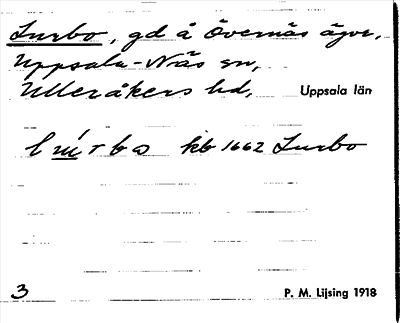 Lurbo, gd å Övernäs ägor,
Uppsala-Näs sn,
Ulleråkers hd, Uppsala län
kb 1662 Lurbo
3 P. M. Lijsing 1918